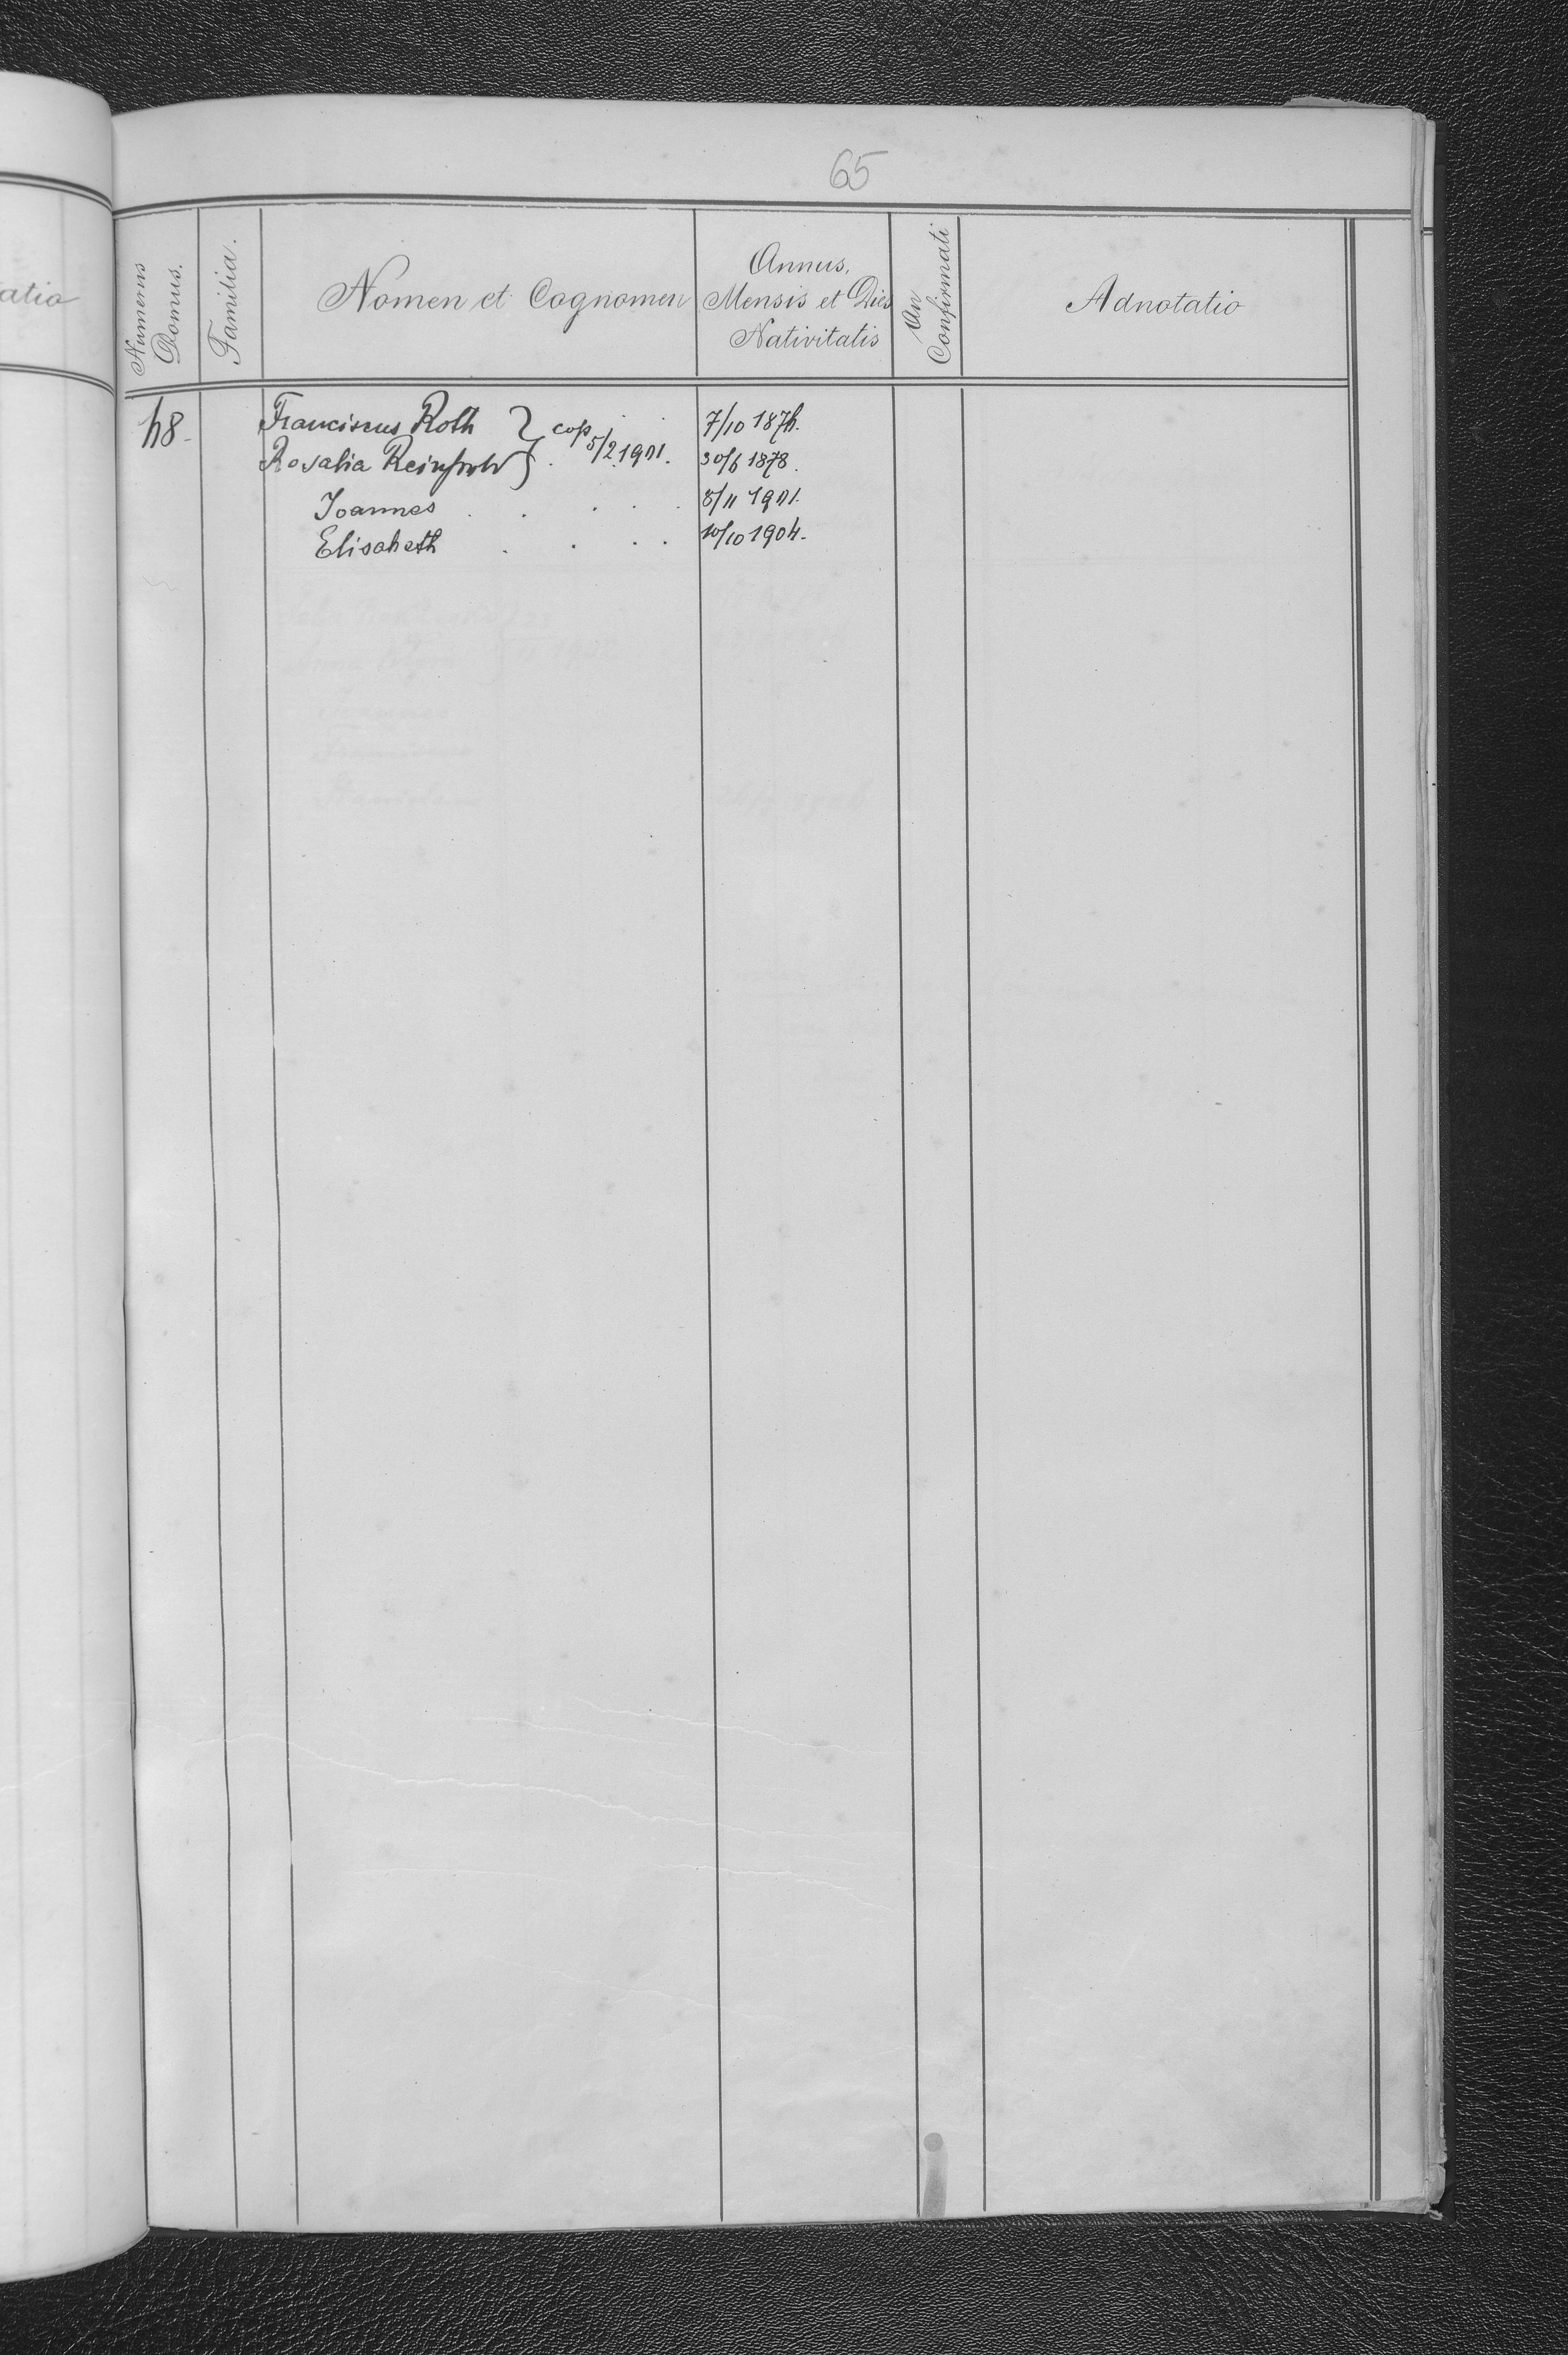 65
atio
Numerus Domus.
Familia.
Nomen et Cognomen
Annus, Mensis et Dies Nativitatis
An Confirmati
Adnotatio
48. Franciscus Roth } cop. 5/2 1901. 7/10 1874.
Rosalia 30/6 1878.
Joannes . . . . . 8/11 1901.
Elisabeth . . . . 10/10 1904.